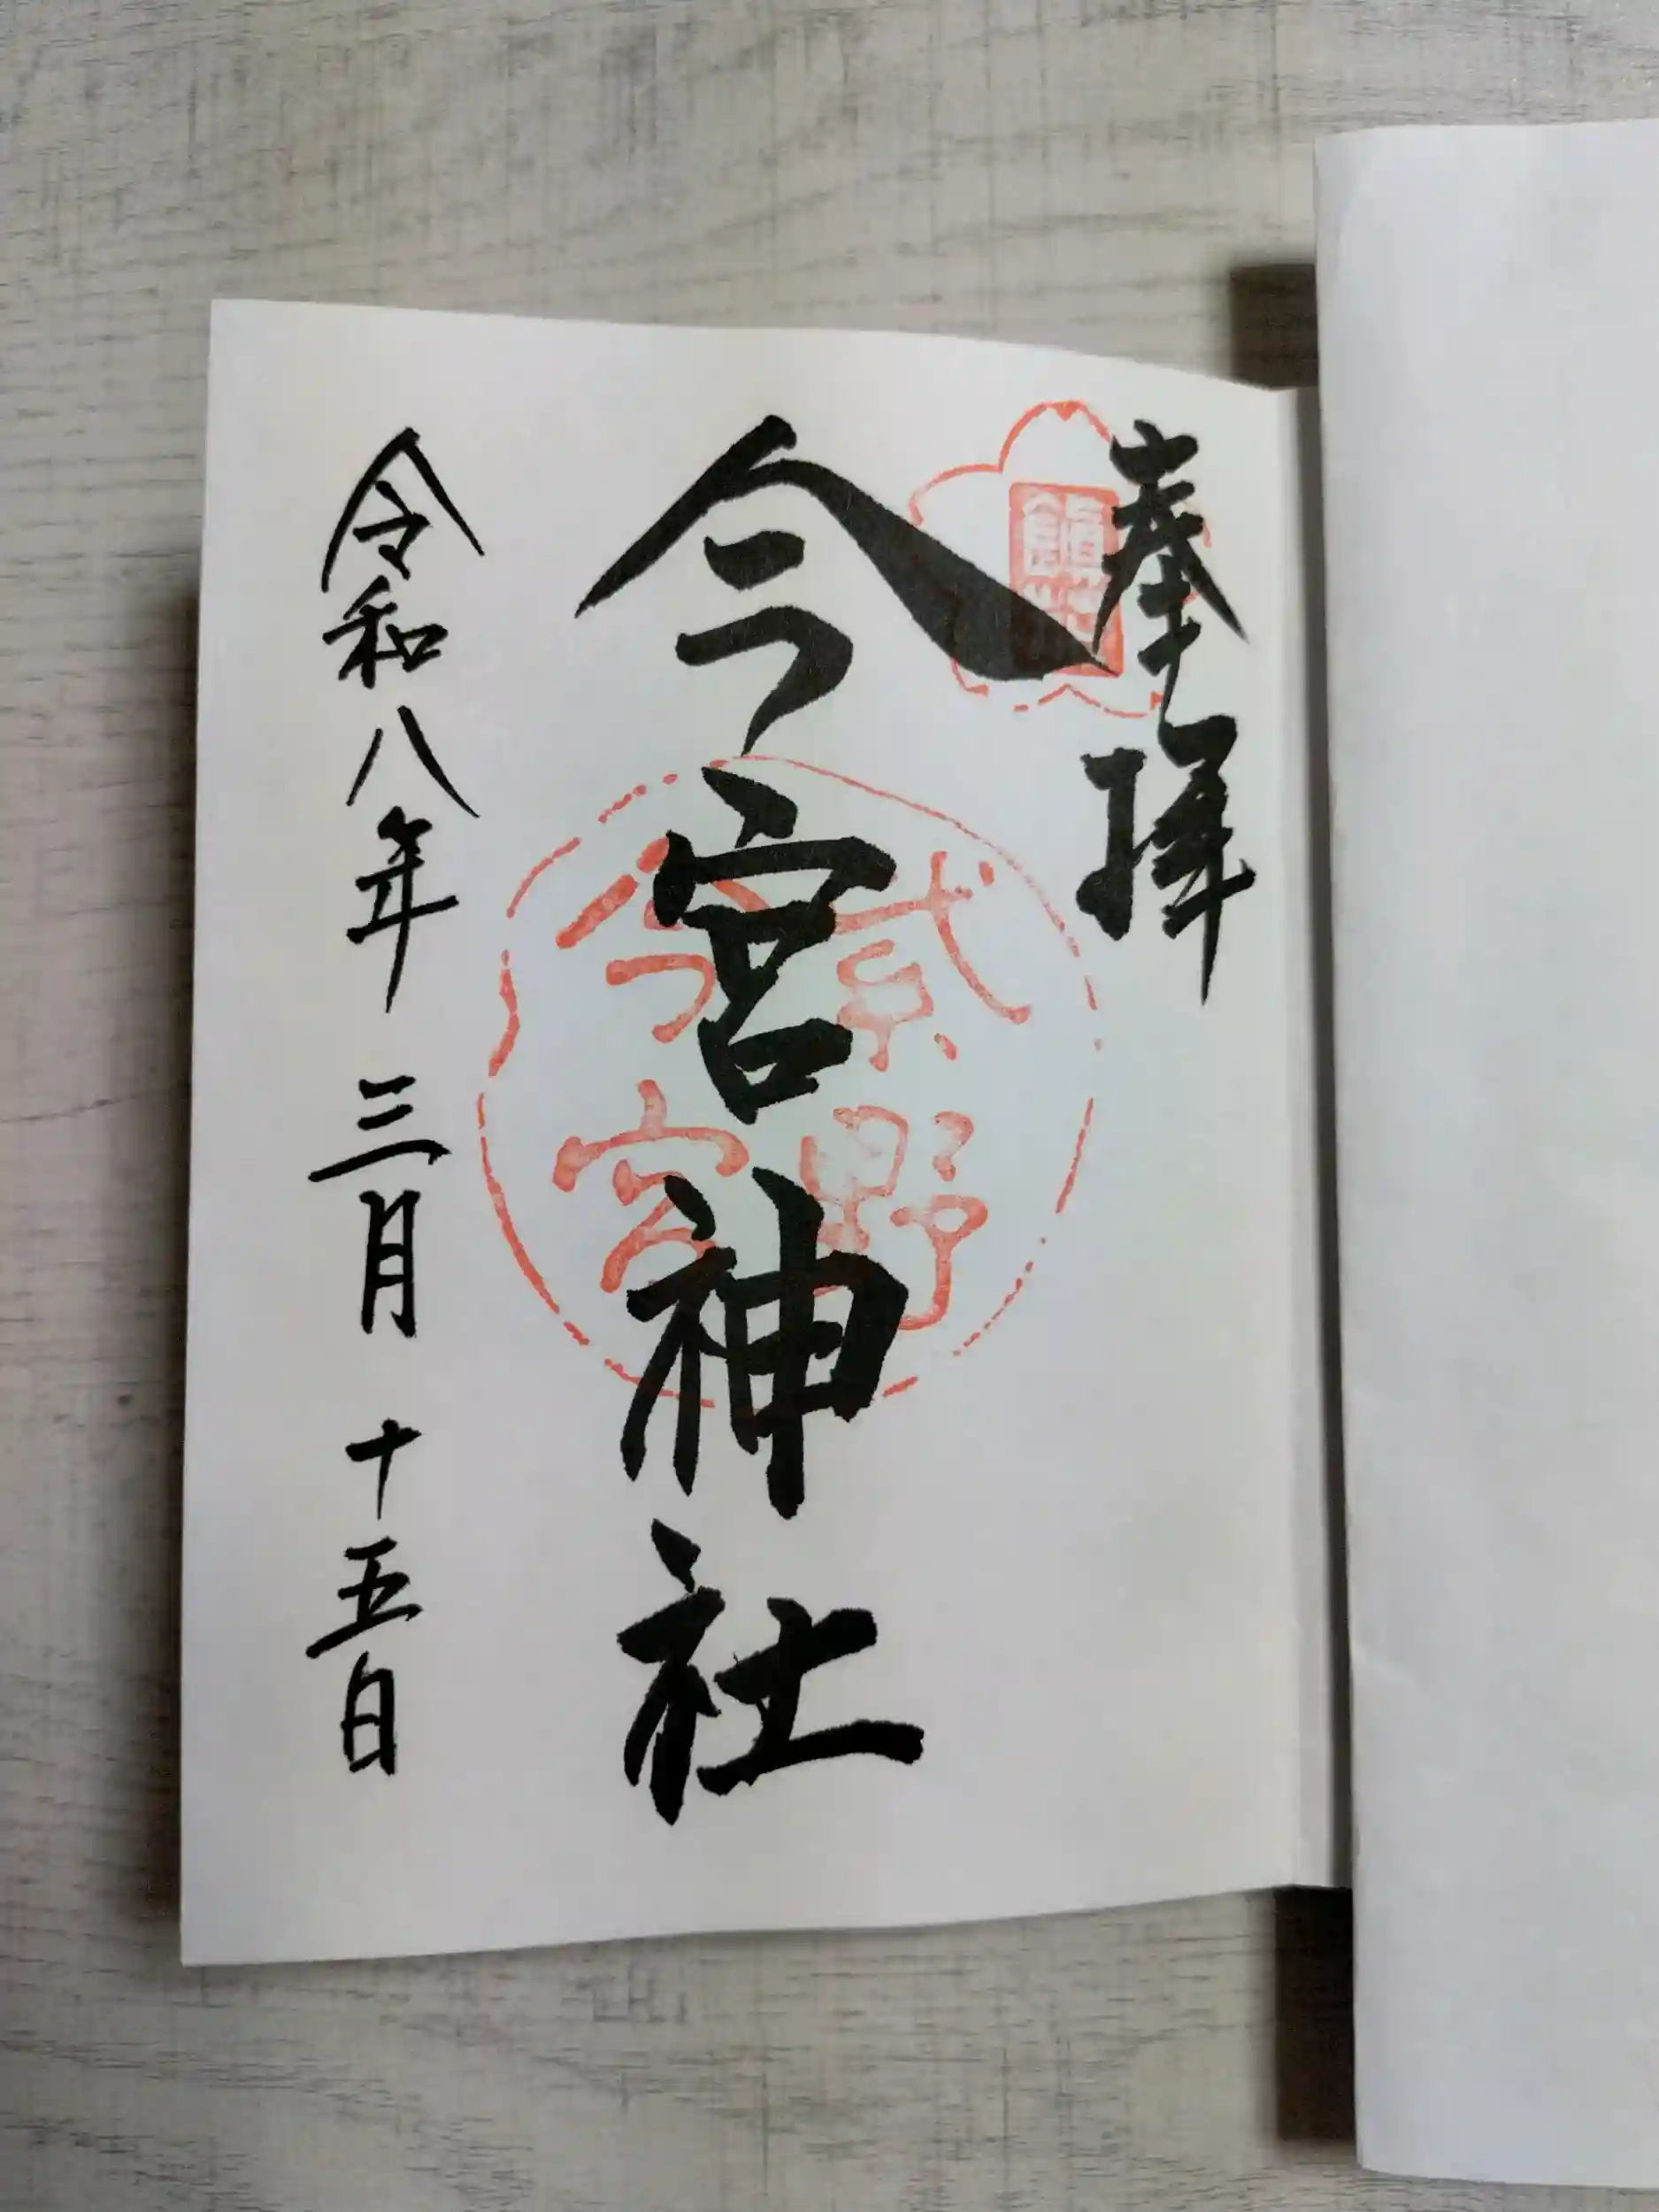 奉拝
今宮神社
紫野
今宮
令和八年 三月 十五日